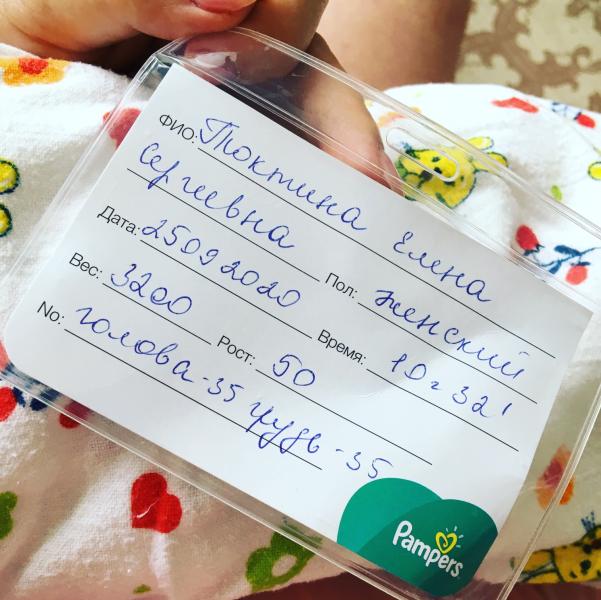 ФИО: Токтина Елена
Сергеевна
Дата: 25092020 Пол: женский
Вес: 3200 Время: 10ч 32'
No: Рост: 50
голова - 35 грудь - 35
Pampers